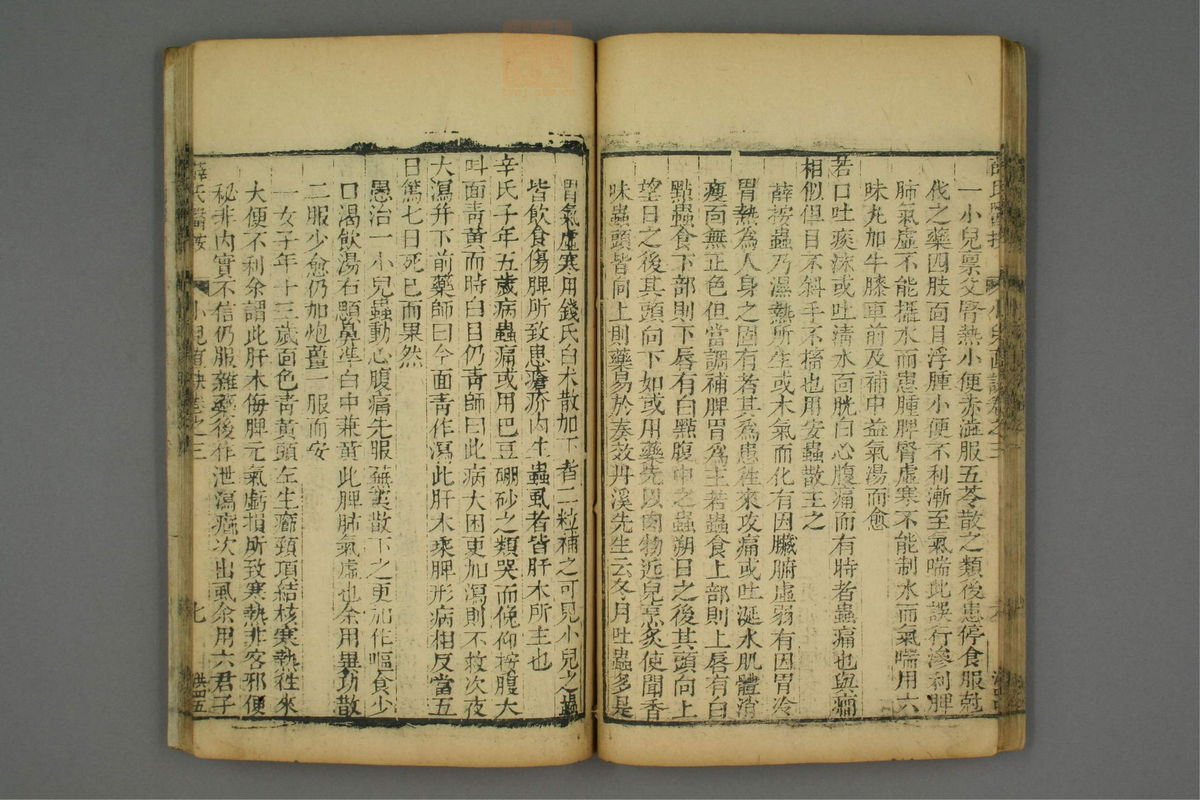 一小兒禀父腎熱小便赤澁服五苓散之類後患停食服尅
伐之藥四肢面目浮腫小便不利漸至氣喘此誤行滲利脾
肺氣虛不能攝水而患腫脾腎虛寒不能制水而氣喘用六
味丸加牛膝車前及補中益氣湯而愈
若口吐痰沫或吐淸水面㿠白心腹痛而有時者蟲痛也與癎
相似但目不斜手不搐也用安蟲散主之
薛按蟲乃濕熱所生或木氣而化有因臟腑虛弱有因胃冷
胃熱為人身之固有者其為患徃來攻痛或吐涎水肌體消
瘦面無正色但當調補脾胃為主若蟲食上部則上唇有白
點蟲食下部則下唇有白點腹中之蟲朔日之後其頭向上
望日之後其頭向下如或用藥先以肉物近兒烹炙使聞香
味蟲頭皆向上則藥易於奏效丹溪先生云冬月吐蟲多是
胃氣虛寒用錢氏白朮散加丁香二粒補之可見小兒之蟲
皆飲食傷脾所致患瘡疥内生蟲虱者皆肝木所主也
辛氏子年五歲病蟲痛或用巴豆硇砂之類哭而俛仰按腹大
叫面靑黃而時白目仍靑師曰此病大困更加瀉則不救次夜
大瀉幷下前藥師曰今面靑作瀉此肝木乘脾形病相反當五
日篤七日死已而果然
愚治一小兒蟲動心腹痛先服蕪荑散下之更加作嘔食少
口渴飲湯右顋鼻準白中兼黃此脾肺氣虛也余用異功散
二服少愈仍加炮薑一服而安
一女子年十三歲面色靑黃頭左生癤頸項結核寒熱徃來
大便不利余謂此肝木侮脾元氣虧損所致寒熱非客邪便
秘非内實不信仍服雜藥後作泄瀉癤次出虱余用六君子
薛氏醫按 小兒直訣卷之三 七